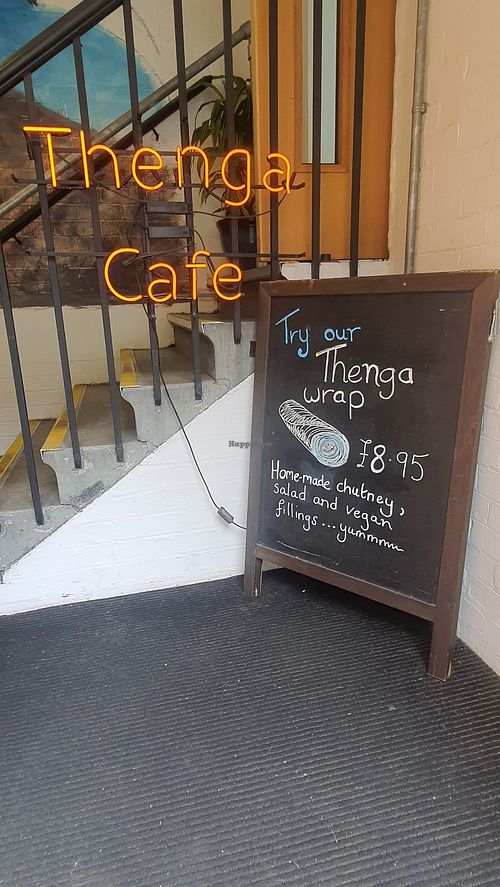 Thenga
Cafe
Try our
Thenga
wrap
£8.95
Home-made chutney,
salad and vegan
fillings...yummmm